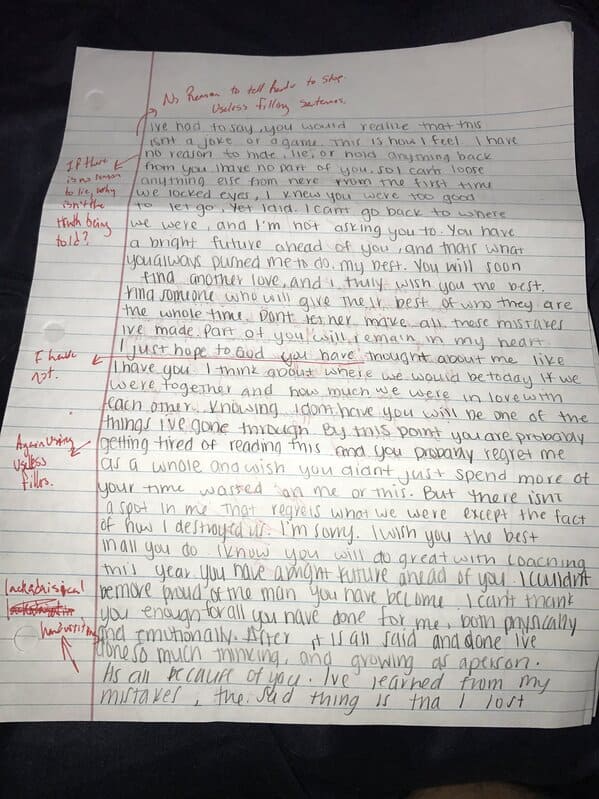 No Reason to tell Reader to stop.
Useless filling sentences.
ive had to say, you would realize that this
isnt a joke or a game. This is how I feel. I have
no reason to hide, lie, or hold anything back
from you. I have no part of you. so I cant loose
anything else from here. From the first time
we locked eyes, I knew you were too good
to let go, Yet I did. I cant go back to where
we were, and I'm not asking you to. You have
a bright future ahead of you, and thats what
you always pushed me to do, my best. You will soon
find another love, and I truly wish you the best.
Find someone who will give their best of who they are
the whole time. Dont let her make all these mistakes
ive made. Part of you will remain in my heart
I just hope to God you have thought about me like
I have you. I think about where we would be today if we
were together and how much we were in love with
each other. Knowing I dont have you will be one of the
things i've gone through. By this point you are probably
getting tired of reading this and you probably regret me
as a whole and wish you didnt just spend more of
your time wasted on me or this. But there isnt
a spot in me that regrets what we were except the fact
of how I destroyed us. I'm sorry. I wish you the best
in all you do. I know you will do great with coaching
this year. You have a bright future ahead of you. I couldn't
be more proud of the man you have become. I can't thank
you enough for all you have done for me, both physically
and emotionally. After it is all said and done I've
done so much thinking, and growing as a person.
Its all because of you. I've learned from my
mistakes, the sad thing is tha I lost
If there
is no reason
to lie, why
isn't the
truth being
told?
I have
not.
Again using
Useless
fillers.
lackadaisical
handwriting